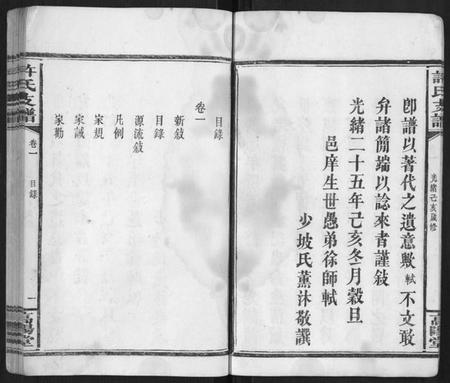 許氏支譜
光緒己亥歲修
高陽堂
卽譜以著代之遺意歟軾不文敢
弁諸簡端以諗來者謹敍
光緒二十五年己亥冬月穀旦
邑庠生世愚弟徐師軾
少坡氏薰沐敬譔
許氏支譜
卷一
目錄
一
高陽堂
目錄
卷一
新敍
目錄
源流敍
凡例
家規
家誡
家勸